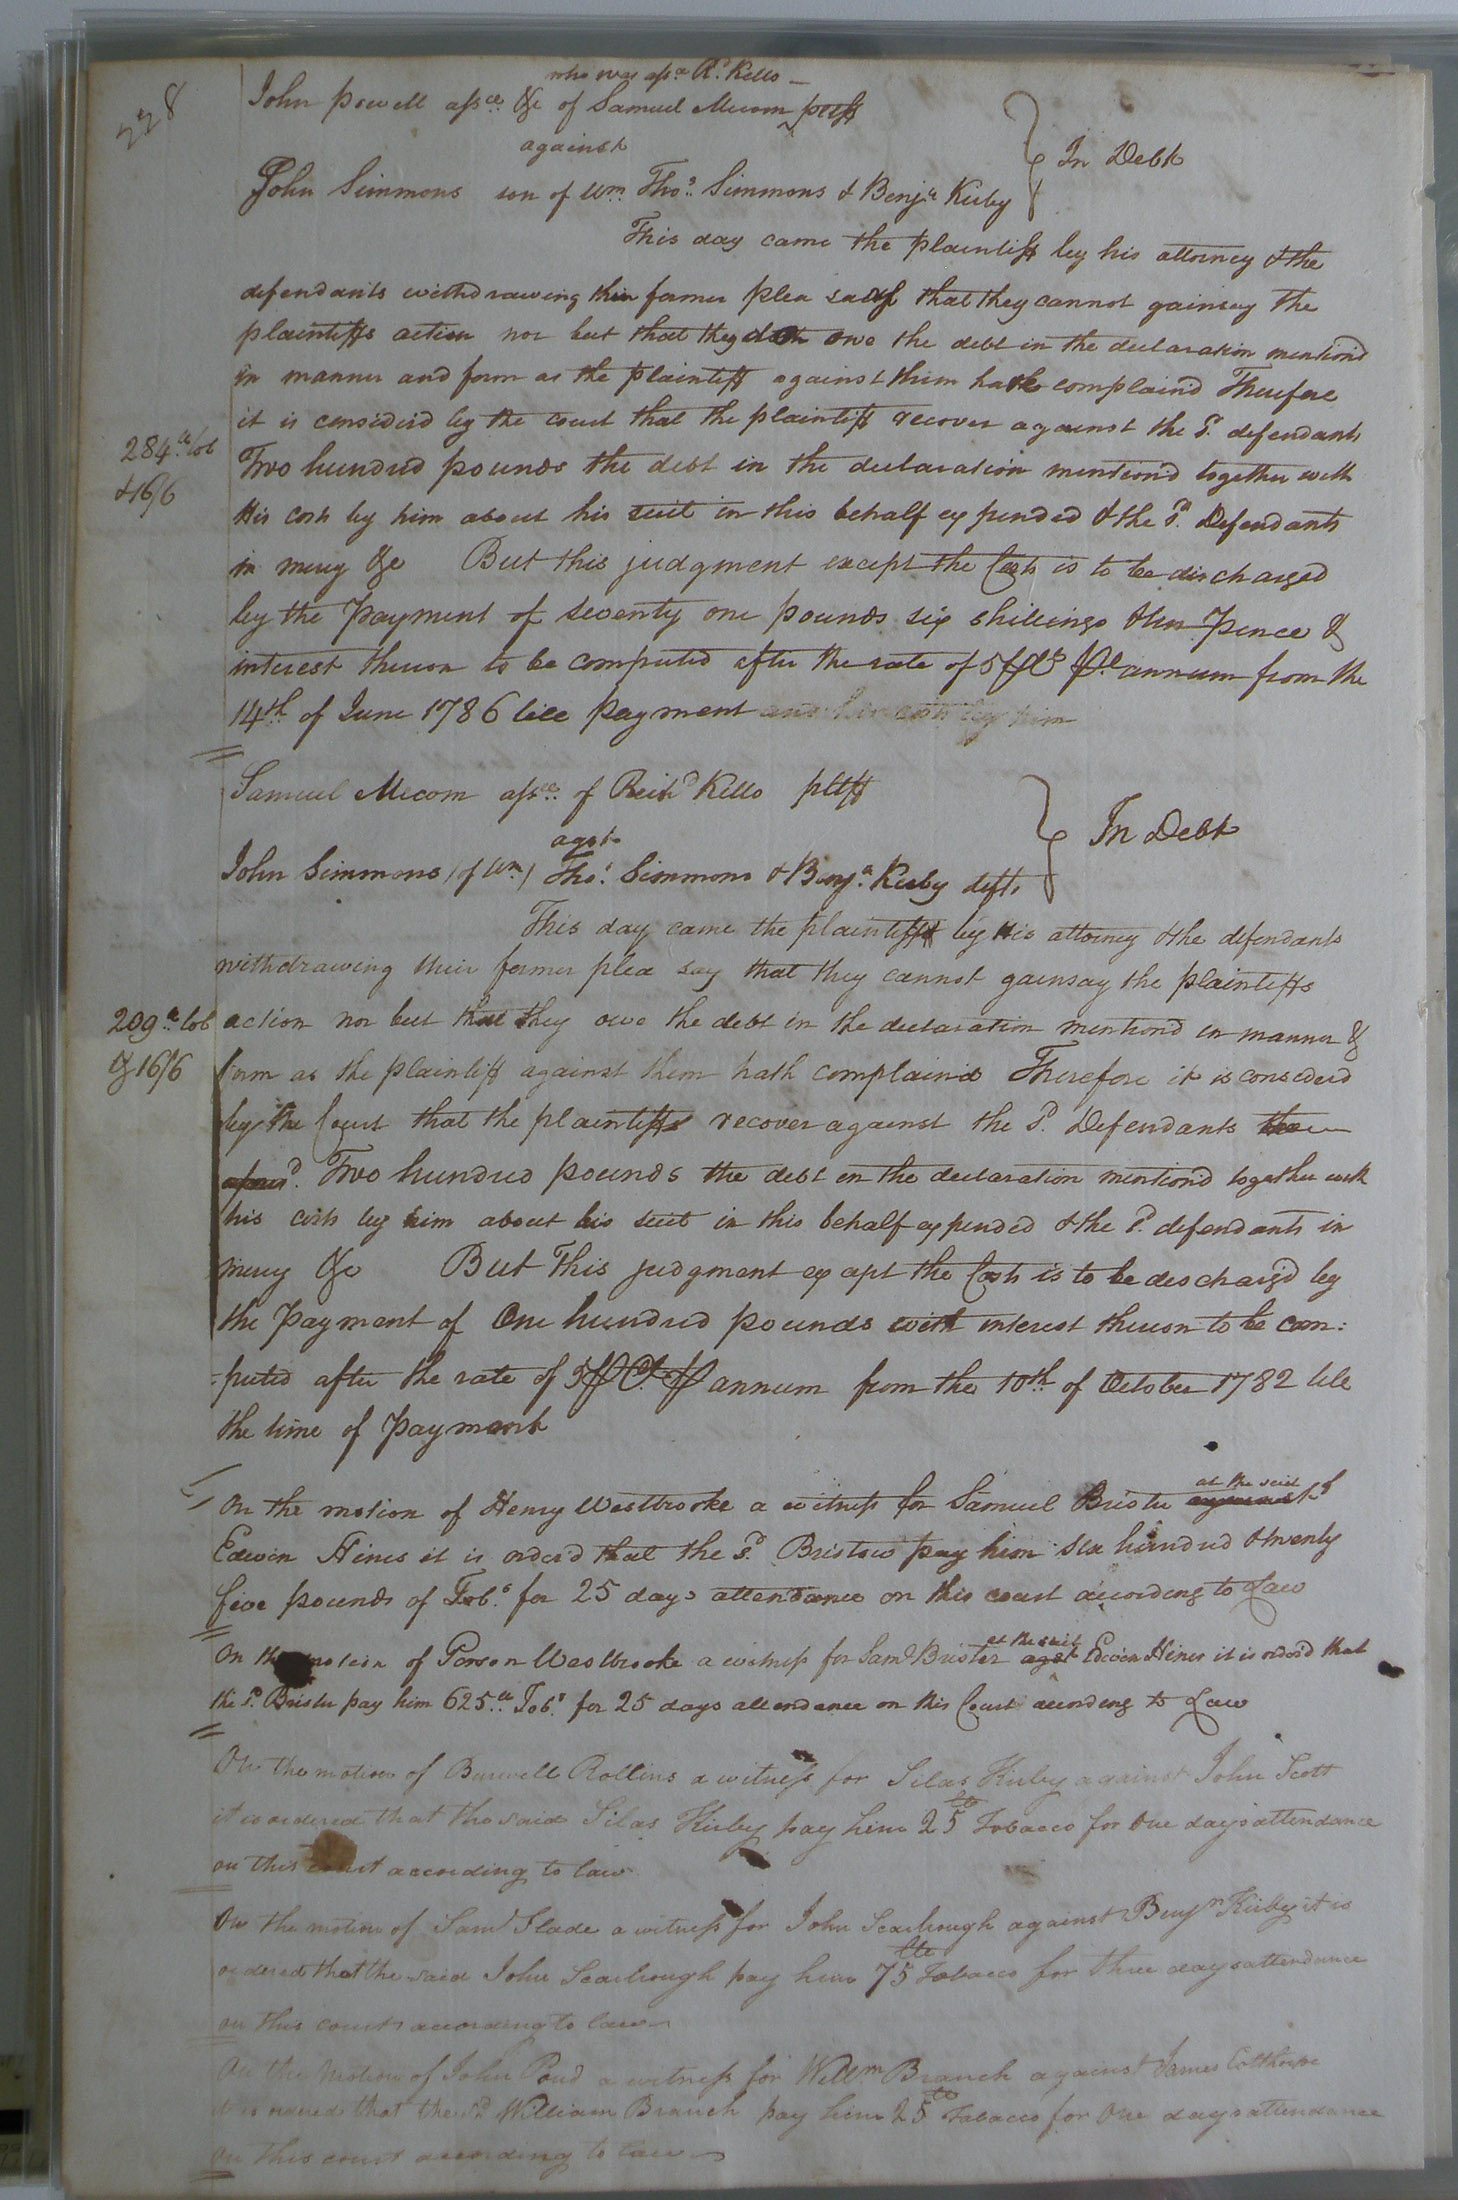 228
who was asse. Rd. Kello
John Powell asse. &c of Samuel Mecom pltff
against
John Simmons son of Wm. Thos. Simmons & Benja. Kirby
In Debt
This day came the plaintiff by his attorney & the
defendants withdrawing their former plea say that they cannot gainsay the
plaintiffs action nor but that they owe the debt in the declaration mention'd
in manner and form as the plaintiff against them hath complain'd Therefore
it is consider'd by the court that the plaintiff recover against the sd. defendants
284 lb tob
& 16/6
Two hundred pounds the debt in the declaration mention'd together with
His costs by him about his suit in this behalf expended & the sd. Defendants
in mercy &c But this judgment except the Costs is to be discharged
by the Payment of seventy one pounds six shillings Pence &
interest thereon to be computed after the rate of 5 P Ct P annum from the
14th of June 1786 till payment
Samuel Mecom asse. of Richd Kello pltff
agst
John Simmons (of Wm) Thos. Simmons & Benja. Kirby defts
In Debt
This day came the plaintiff by His attorney & the defendants
withdrawing their former plea say that they cannot gainsay the plaintiffs
209 lb tob
& 16/6
action nor but that they owe the debt in the declaration mention'd in manner &
form as the plaintiff against them hath complain'd Therefore it is consider'd
by the Court that the plaintiff recover against the sd. Defendants
Two hundred pounds the debt in the declaration mention'd together with
his costs by him about his suit in this behalf expended & the sd. defendants in
mercy &c But This judgment except the Costs is to be discharg'd by
the Payment of One hundred pounds with interest thereon to be com:
-puted after the rate of 5 P Ct. P annum from the 10th of October 1782 till
the time of Payment
at the suit of
On the motion of Henry Westbrooke a witness for Samuel Brister
Edwin Hines it is order'd that the sd. Bristow pay him six hundred & twenty
five pounds of Tobo. for 25 days attendance on this court according to Law
at the suit
On the motion of Person Westbrooke a witness for Saml Brister agst Edwin Hines it is order'd that
the sd. Brister pay him 625 lb Tobo. for 25 days attendance on this Court according to Law
On the motion of Burwell Rollins a witness for Silas Kirby against John Scott
it is ordered that the said Silas Kirby pay him 25 lb Tobacco for One days attendance
on this court according to law
On the motion of Saml Slade a witness for John Scarbrough against Benjn Kirby it is
ordered that the said John Scarbrough pay him 75 lb Tobacco for three days attendance
on this court according to law
On the motion of John Pond a witness for Willm Branch against James
it is ordered that the sd William Branch pay him 25 lb Tobacco for One days attendance
on this court according to law